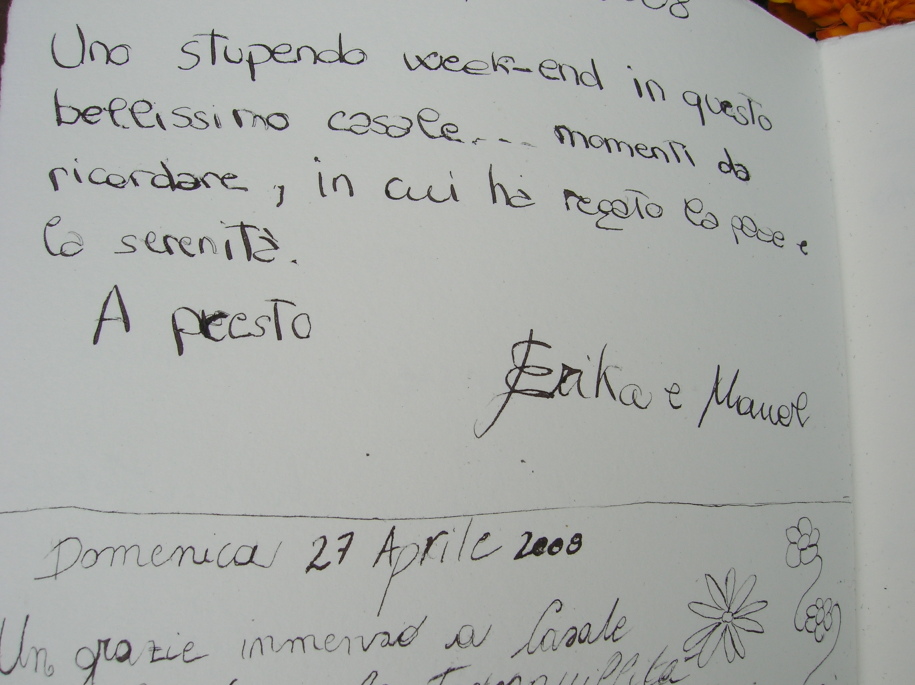 08
Uno stupendo week-end in questo
bellissimo casale... momenti da
ricordare, in cui ha regato la pace e
la serenità.
A presto
Erika e Manuel
Domenica 27 Aprile 2008
Un grazie immenso a Casale